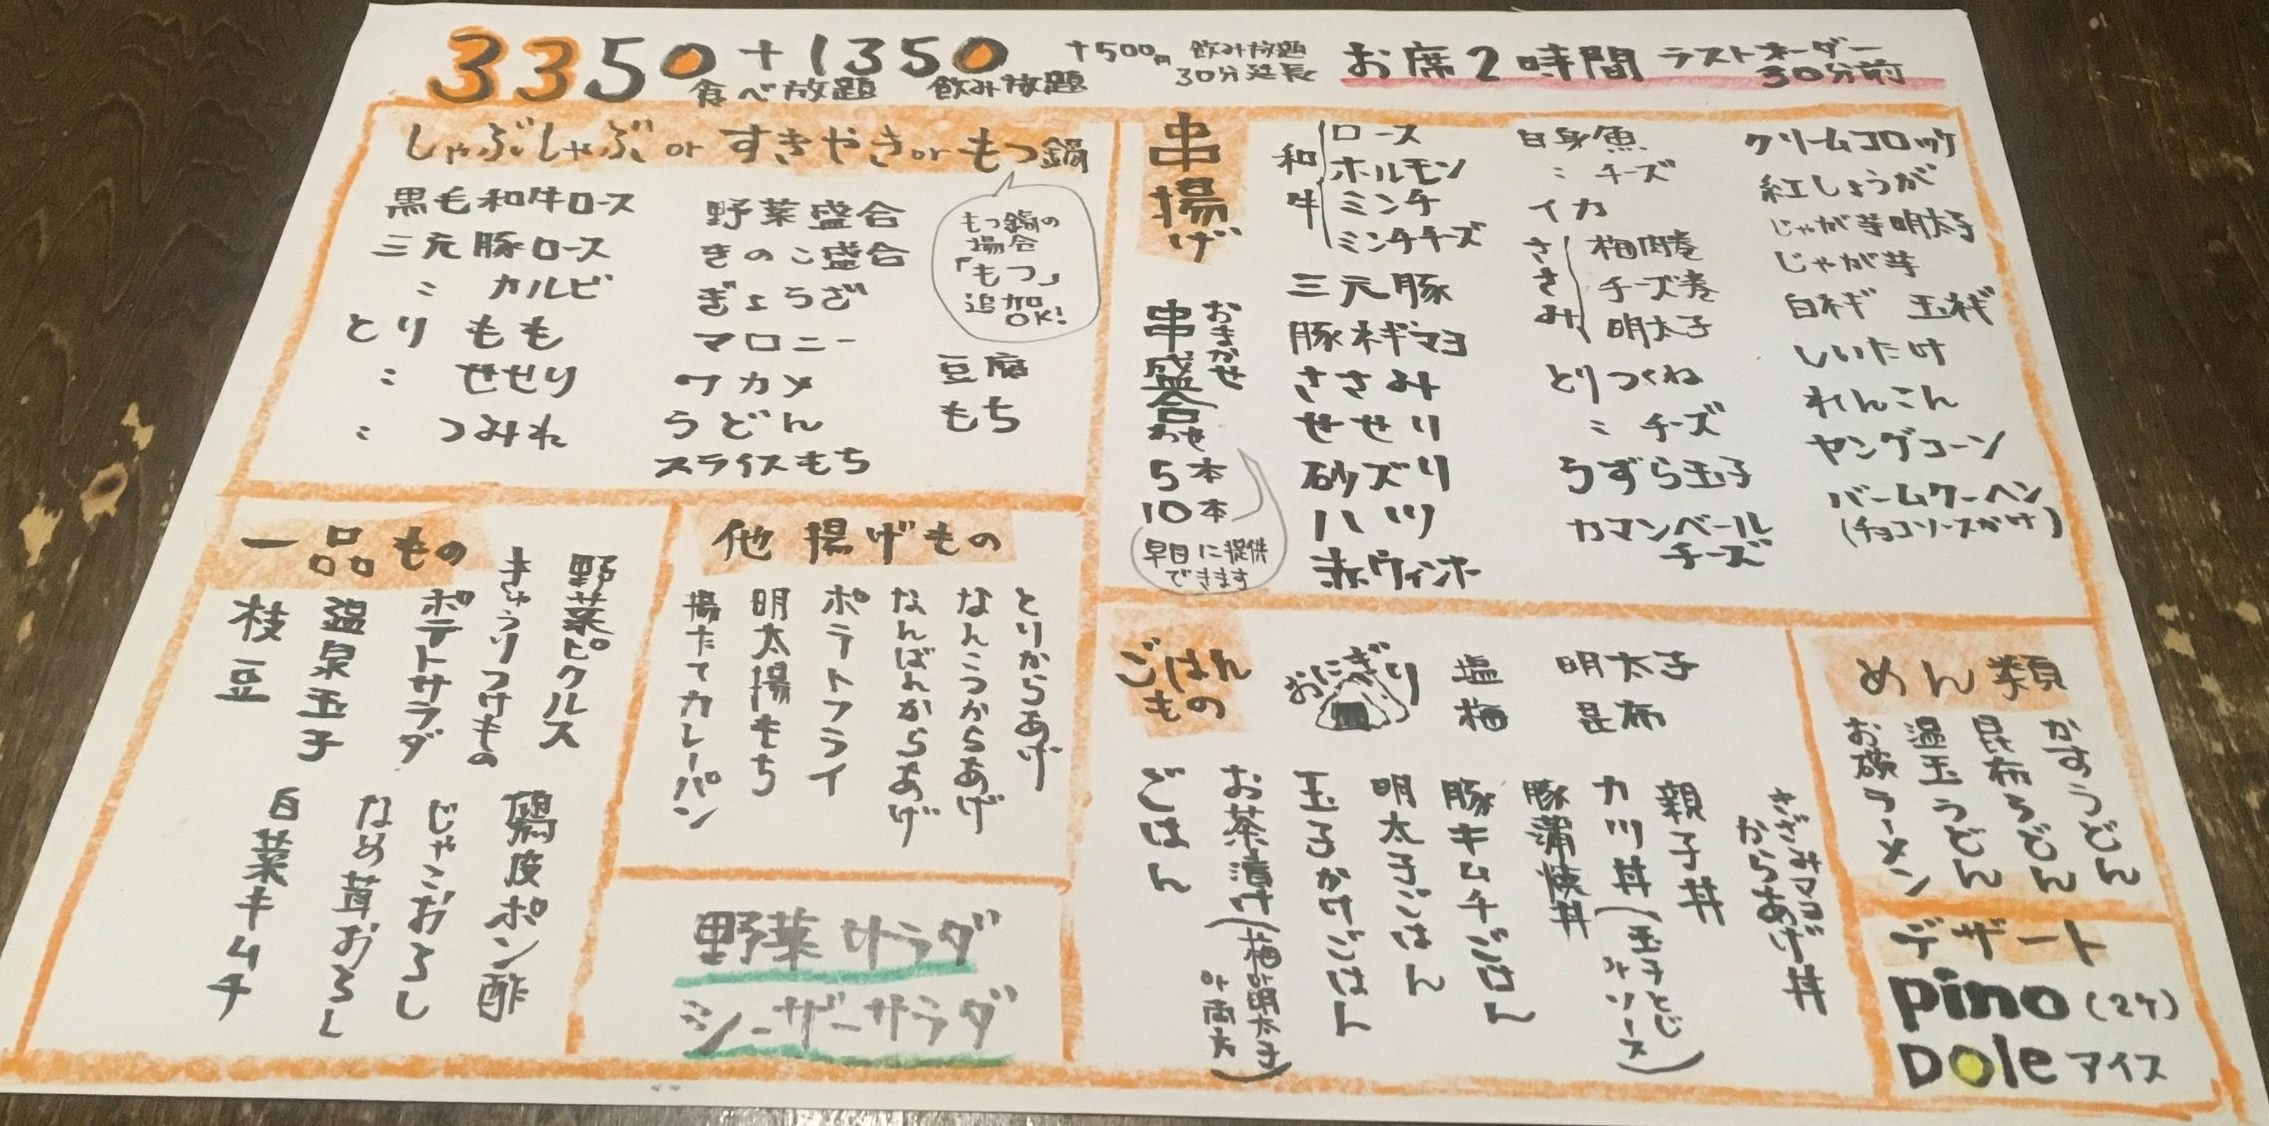 3350+1350
食べ放題 飲み放題
+500円 飲み放題
30分延長
お席2時間 ラストオーダー
30分前
しゃぶしゃぶorすきやきorもつ鍋
黒毛和牛ロース
三元豚ロース
〃 カルビ
とり もも
〃 せせり
〃 つみれ
野菜盛合
きのこ盛合
ぎょうざ
マロニー
ワカメ
うどん
スライスもち
豆腐
もち
もつ鍋の
場合
「もつ」
追加
OK!
串揚げ
おまかせ
串盛合わせ
5本
10本
早目に提供
できます
和牛
ロース
ホルモン
ミンチ
ミンチチーズ
三元豚
豚ネギマヨ
ささみ
せせり
砂ズリ
ハツ
赤ウィンナー
白身魚
〃 チーズ
イカ
ささみ
梅肉巻
チーズ巻
明太子
とりつくね
〃 チーズ
うずら玉子
カマンベール
チーズ
クリームコロッケ
紅しょうが
じゃが芋明太子
じゃが芋
白ネギ 玉ネギ
しいたけ
れんこん
ヤングコーン
バームクーヘン
(チョコソースがけ)
一品もの
野菜ピクルス
きゅうりつけもの
ポテトサラダ
温泉玉子
枝豆
鶏皮ポン酢
じゃこおろし
なめ茸おろし
白菜キムチ
他揚げもの
とりからあげ
なんこつからあげ
なんばんからあげ
ポテトフライ
明太揚もち
揚たてカレーパン
野菜サラダ
シーザーサラダ
ごはん
もの
おにぎり
塩 明太子
梅 昆布
きざみマヨ
からあげ丼
親子丼
カツ丼(玉子とじ
orソース)
豚蒲焼丼
豚キムチごはん
明太子ごはん
玉子かけごはん
お茶漬け(梅or明太子
or両方)
ごはん
めん類
かすうどん
昆布うどん
温玉うどん
お鍋ラーメン
デザート
pino(2ケ)
Dole アイス